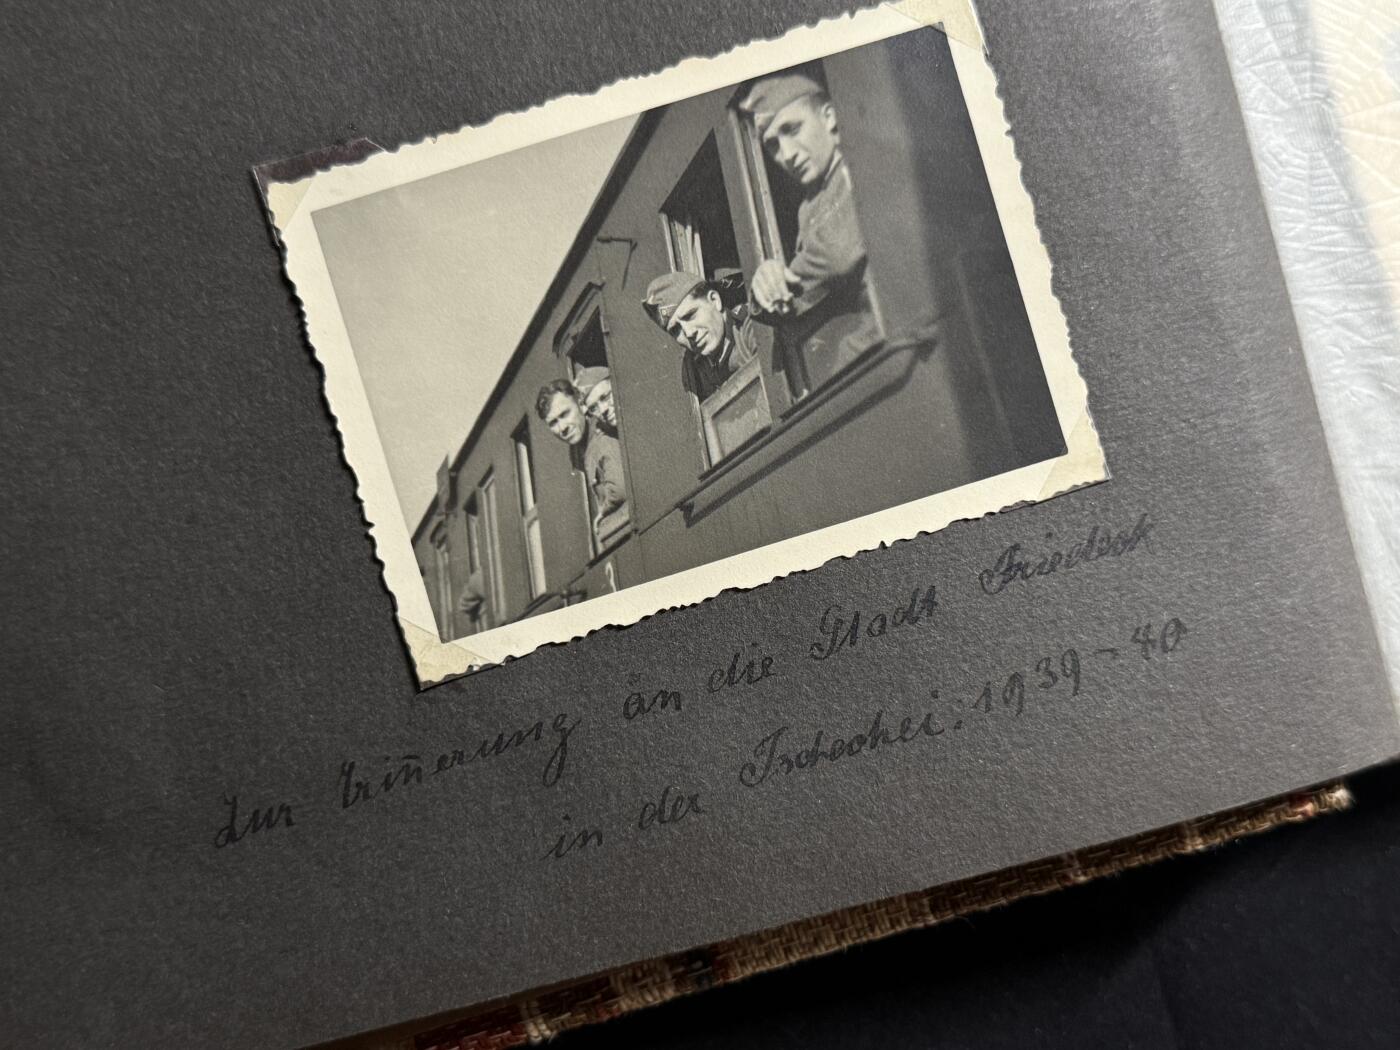 Zur Erin̄erung an die Stadt Friedeck
in der Tschechei: 1939-40
3